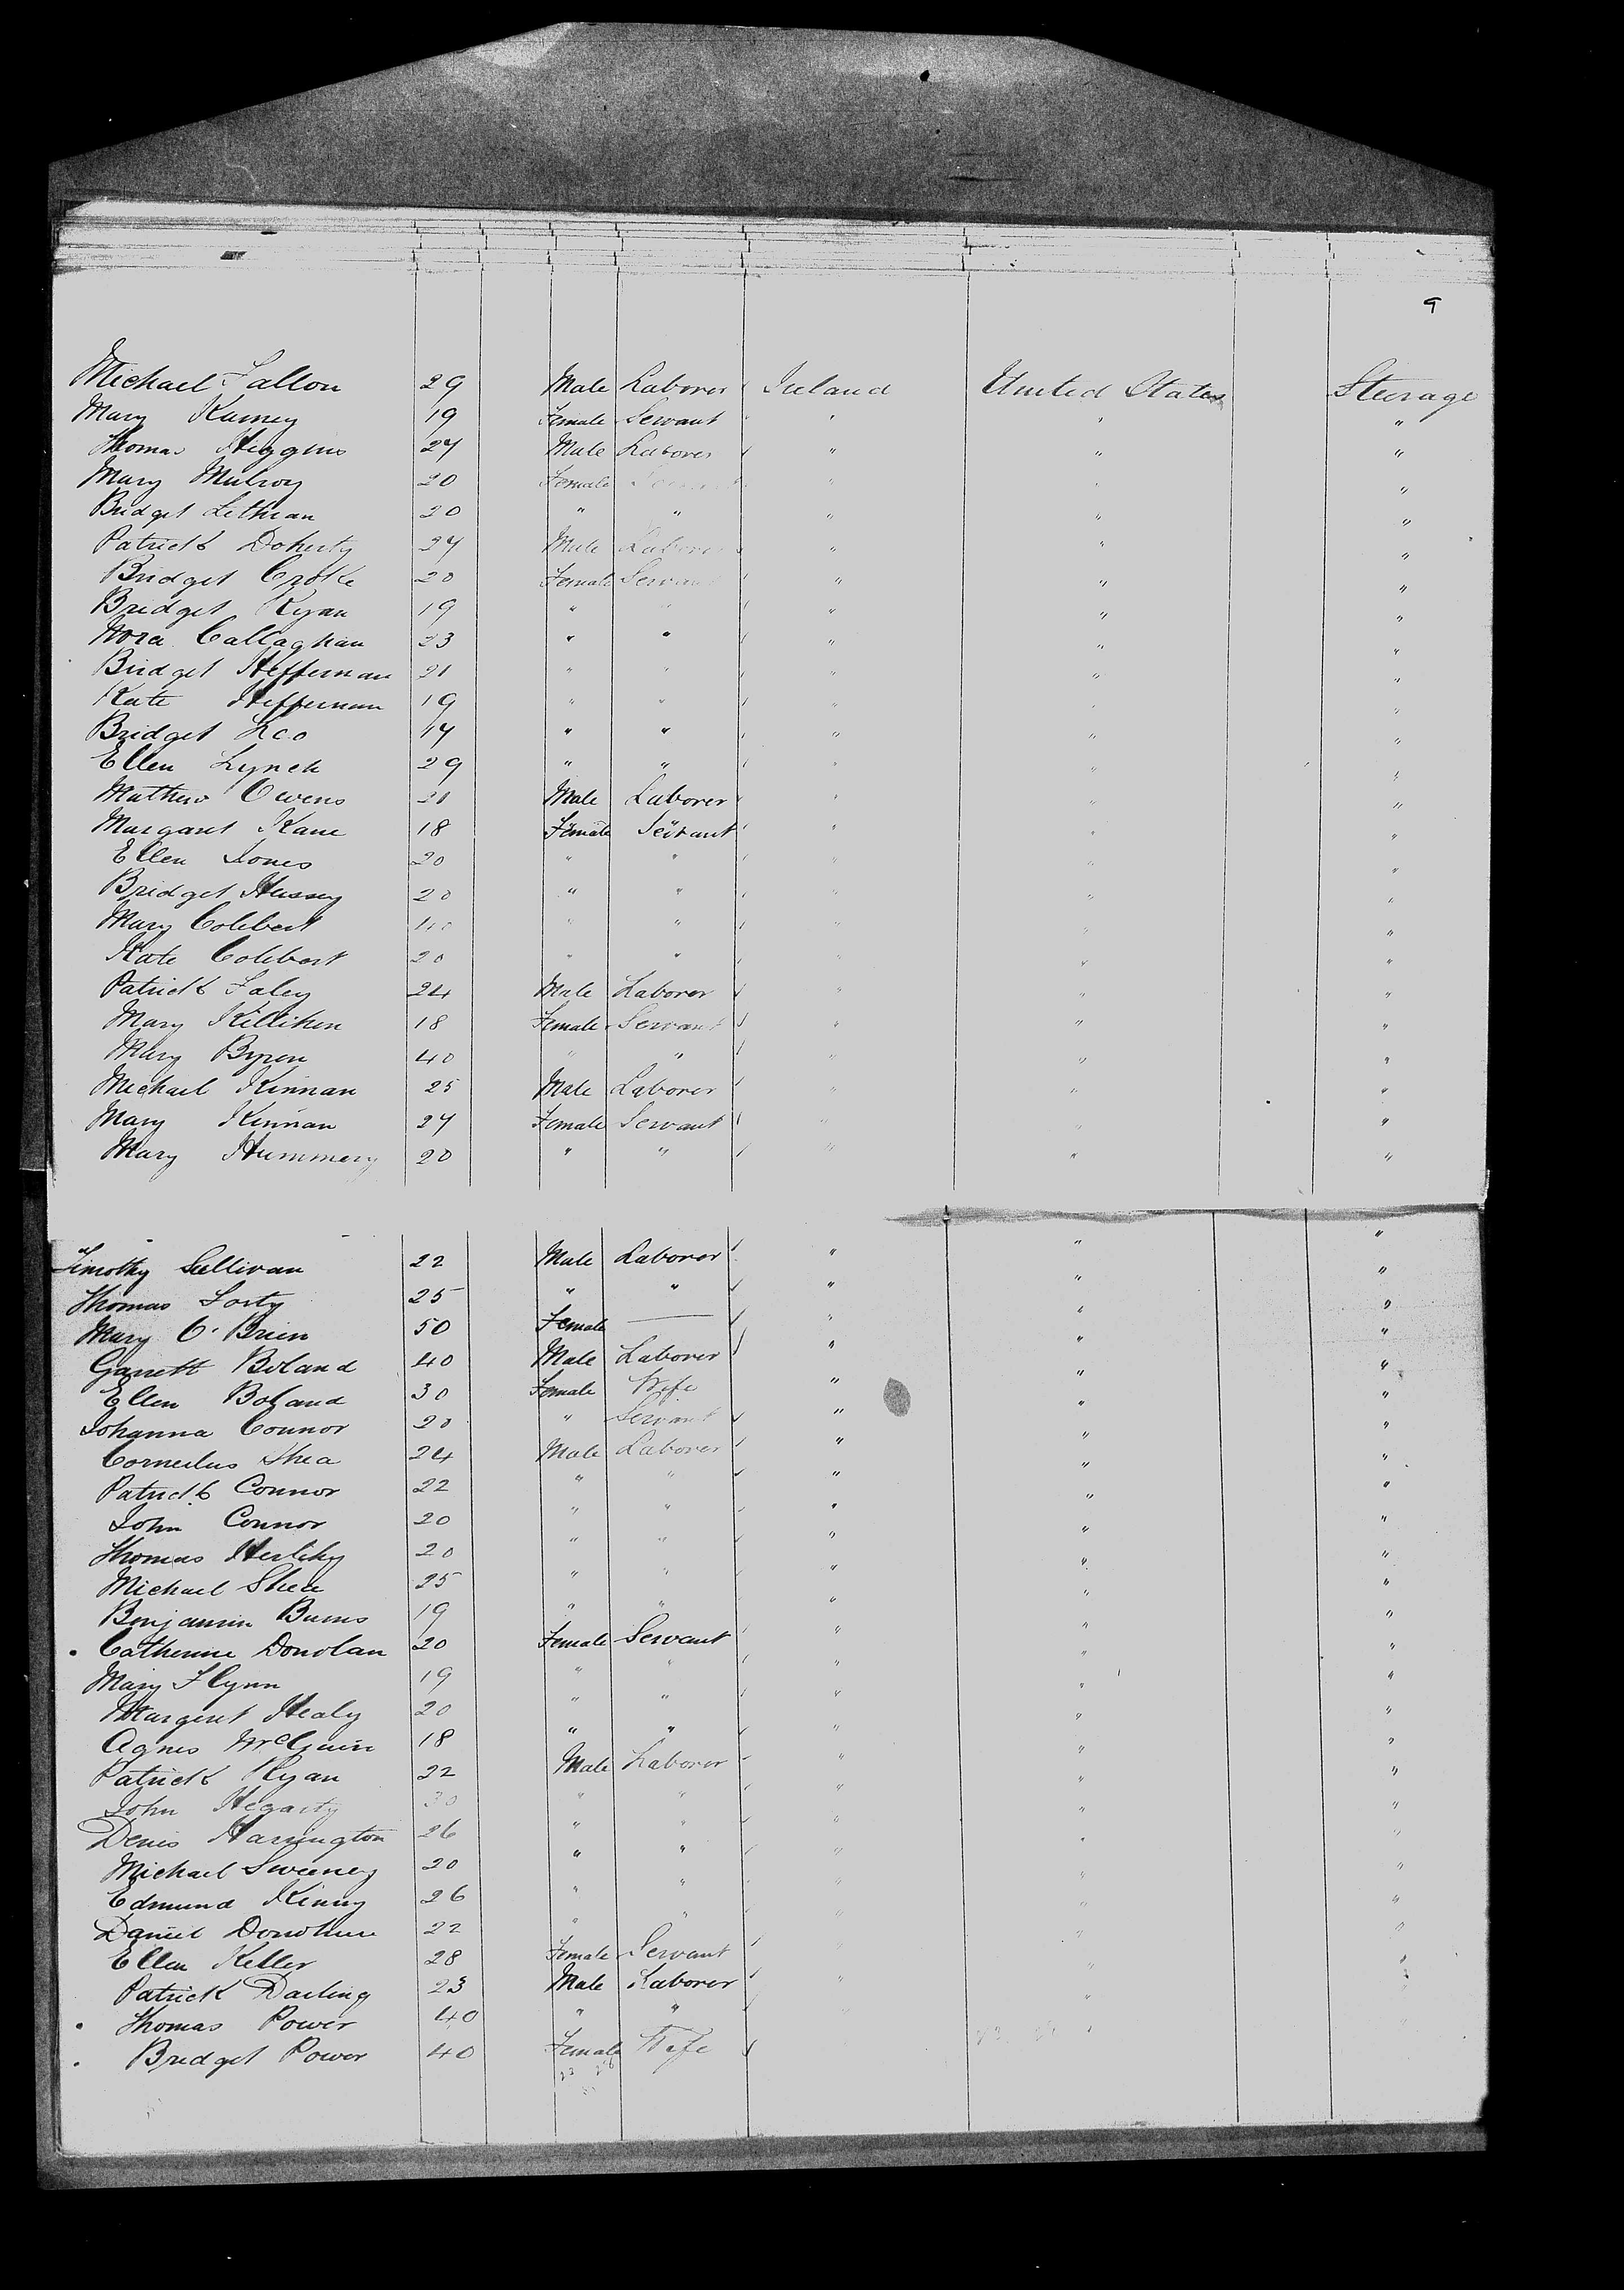 9
Michael Fallon 29 Male Laborer Ireland United States Steerage
Mary 19 Female Servant " " "
Thomas Higgins 27 Male Laborer " " "
Mary Mulroy 20 Female Servant " " "
Bridget 20 " " " " "
Patrick Doherty 27 Male Laborer " " "
Bridget Croke 20 Female Servant " " "
Bridget Ryan 19 " " " " "
Nora Callaghan 23 " " " " "
Bridget Heffernan 21 " " " " "
Kate Heffernan 19 " " " " "
Bridget 17 " " " " "
Ellen Lynch 29 " " " " "
Mathew Owens 21 Male Laborer " " "
Margaret Kane 18 Female Servant " " "
Ellen Jones 20 " " " " "
Bridget Hussey 20 " " " " "
Mary Colebert 40 " " " " "
Kate Colebert 20 " " " " "
Patrick Faley 24 Male Laborer " " "
Mary Killiken 18 Female Servant " " "
Mary Byren 40 " " " " "
Michael Kinnan 25 Male Laborer " " "
Mary Kinnan 27 Female Servant " " "
Mary Hummery 20 " " " " "
Timothy Sullivan 22 Male Laborer " " "
Thomas 25 " " " " "
Mary O'Brien 50 Female — " " "
Garrett Boland 40 Male Laborer " " "
Ellen Boland 30 Female Wife " " "
Johanna Connor 20 " Servant " " "
Cornelius Shea 24 Male Laborer " " "
Patrick Connor 22 " " " " "
John Connor 20 " " " " "
Thomas Herlihy 20 " " " " "
Michael Shea 25 " " " " "
Benjamin Burns 19 " " " " "
Catherine Donolan 20 Female Servant " " "
Mary Flynn 19 " " " " "
Margaret Healy 20 " " " " "
Agnes McGuire 18 " " " " "
Patrick Ryan 22 Male Laborer " " "
John Hegarty 30 " " " " "
Denis Harrington 26 " " " " "
Michael Sweeney 20 " " " " "
Edmund Kinny 26 " " " " "
Daniel Donohue 22 " " " "
Ellen Keller 28 Female Servant " "
Patrick Darling 23 Male Laborer " " "
Thomas Power 40 " " "
Bridget Power 40 Female Wife